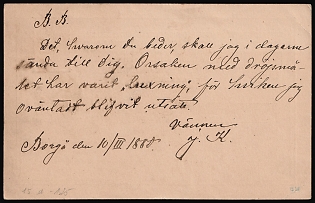 B. B.
Det, hvarom Du beder, skall jag i dagarne
sända till dig. Orsaken med dröjsmå-
let har varit "luxning", för hvilken jag
oväntadt blifvit utsatt.
Vännen
J. K.
Borgå den 10/III 1888.